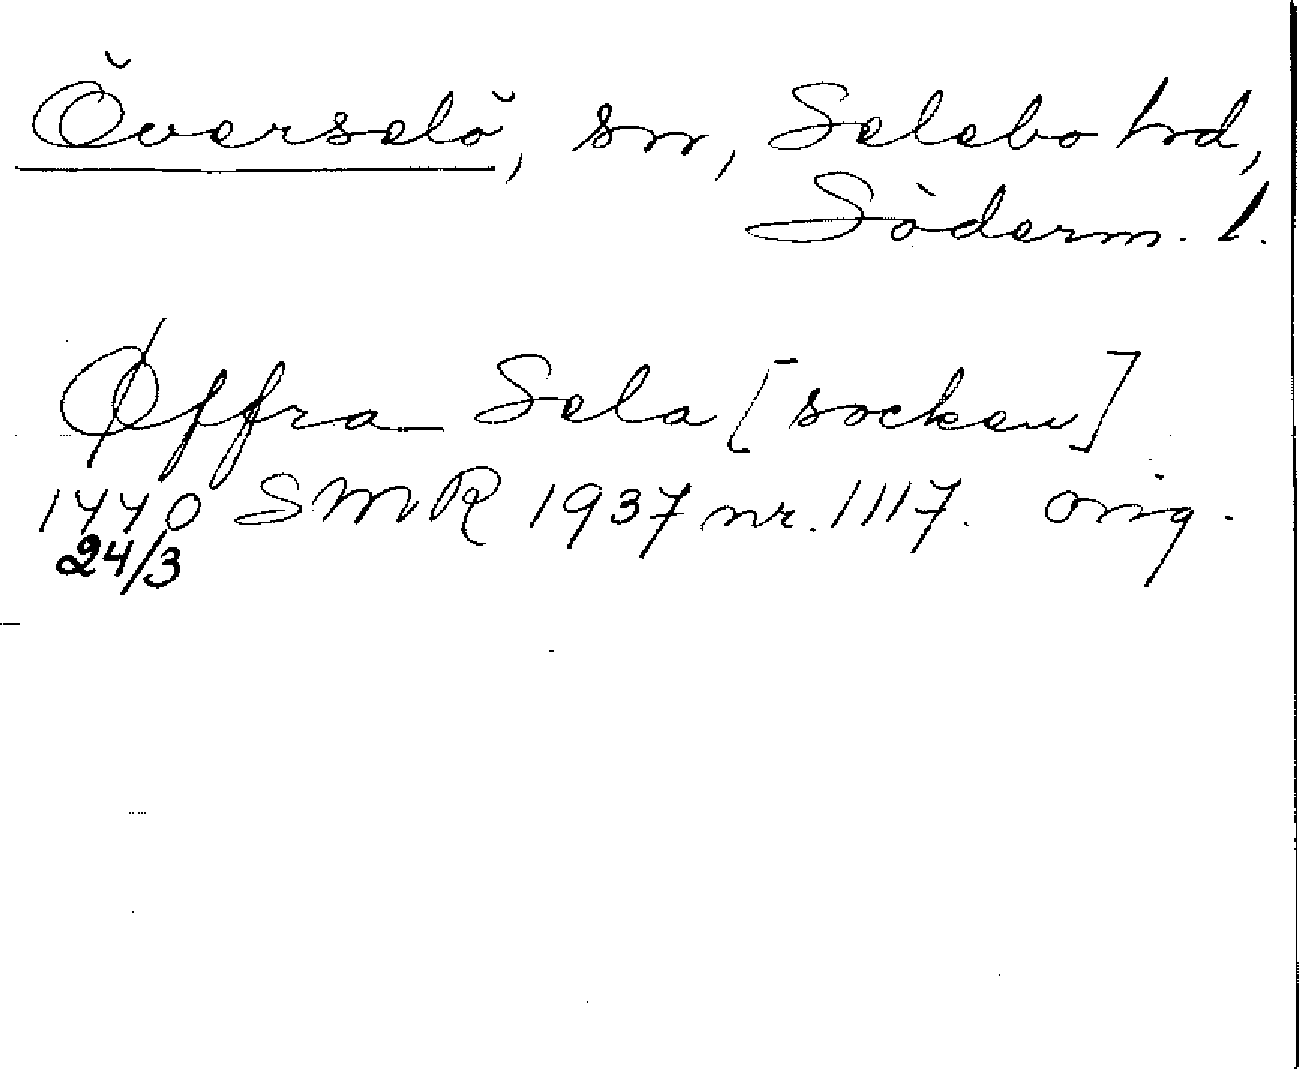 Överselö, sn, Selebo hd,
Söderm. l.
Øffra Sela [socken]
1440 SMR 1937 nr. 1117. orig.
24/3